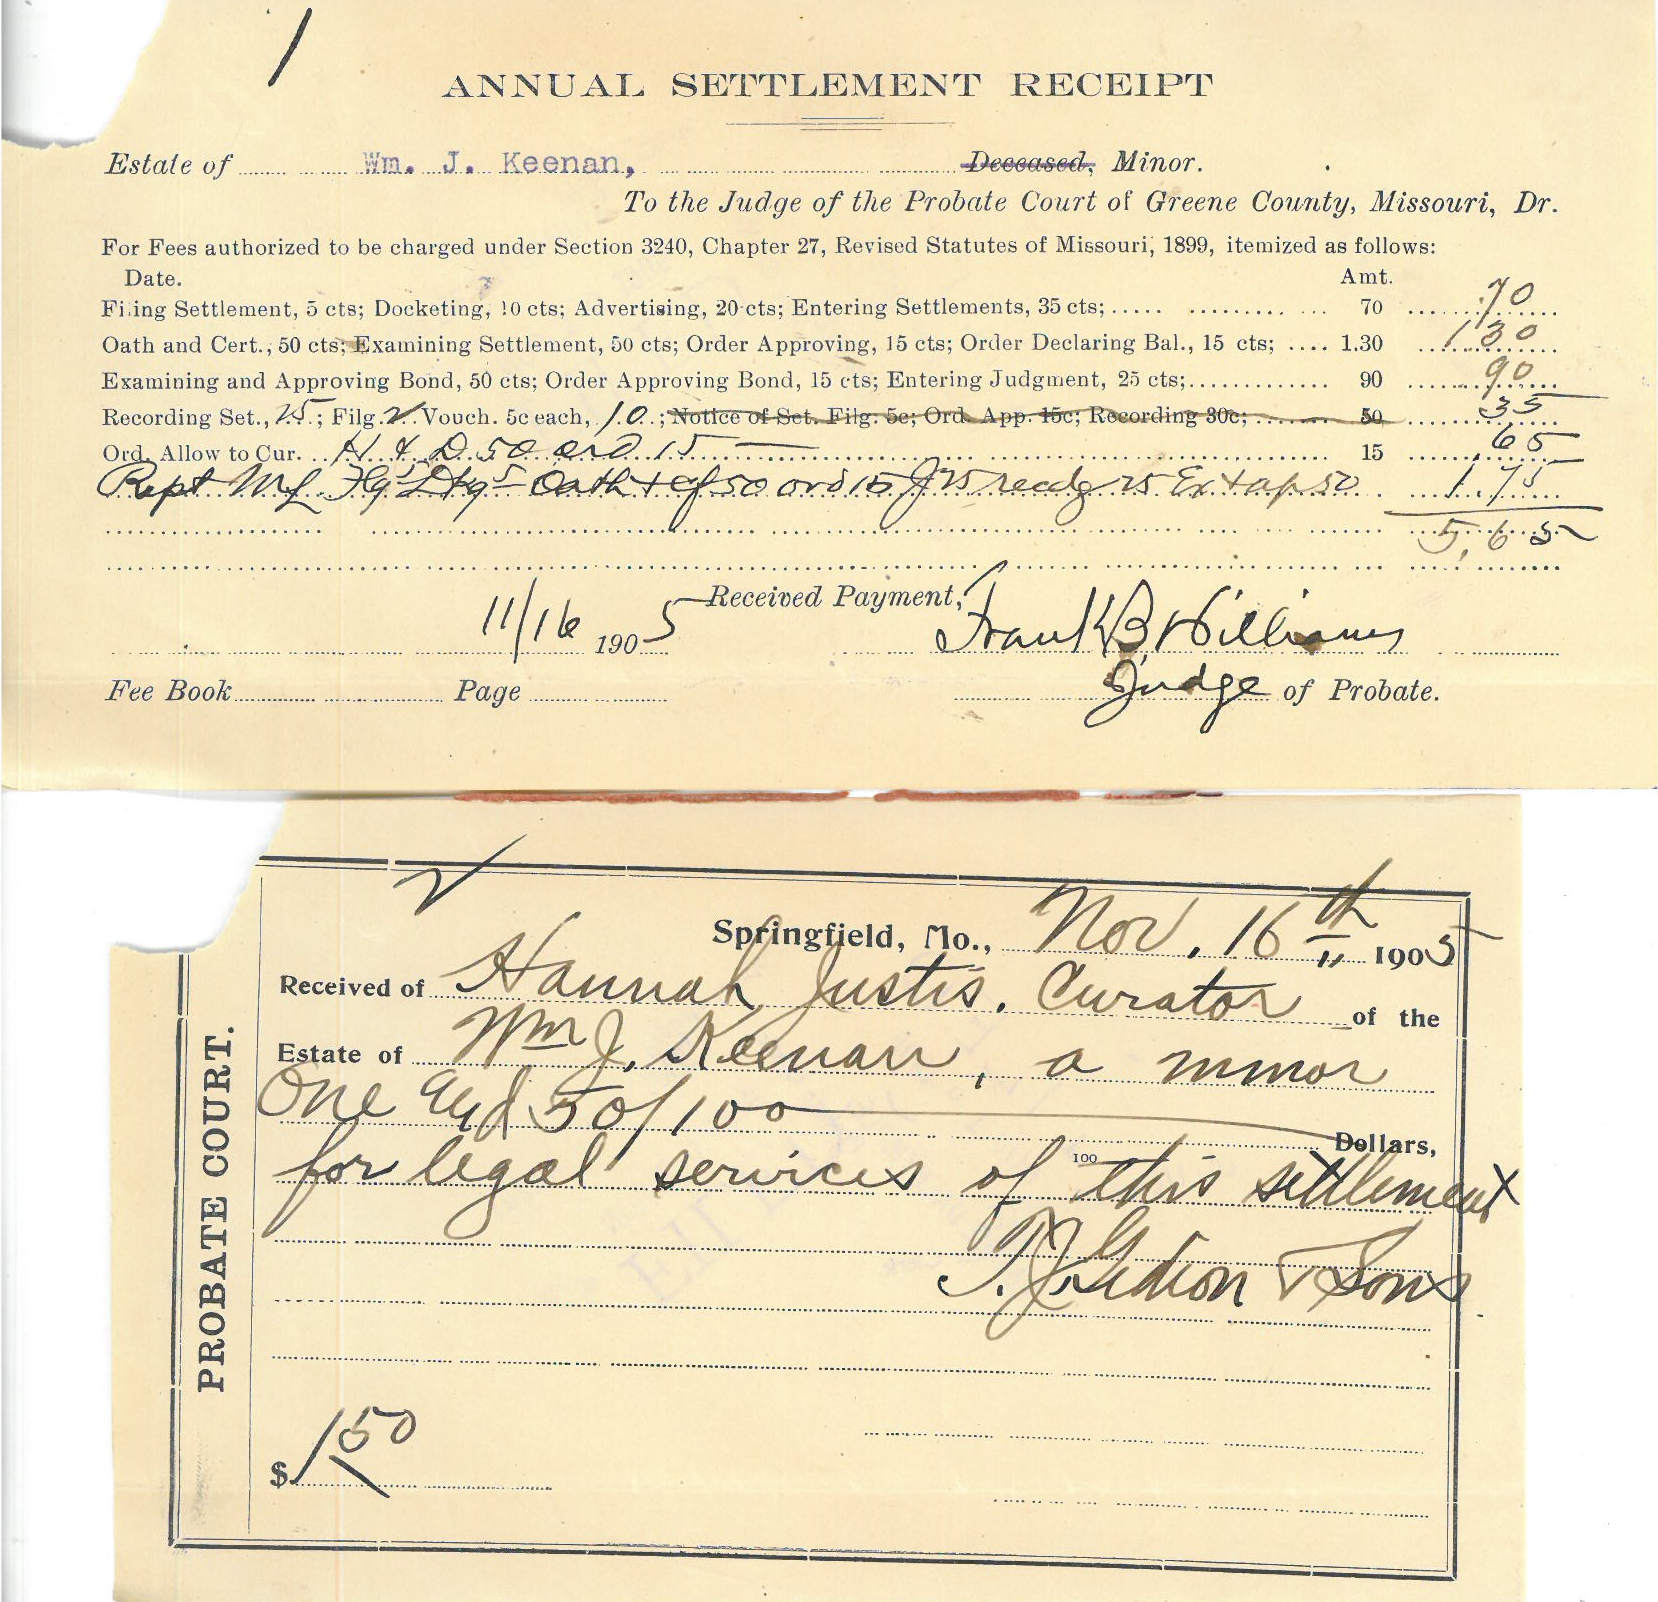 1
ANNUAL SETTLEMENT RECEIPT
Estate of Wm. J. Keenan, Deceased, Minor.
To the Judge of the Probate Court of Greene County, Missouri, Dr.
For Fees authorized to be charged under Section 3240, Chapter 27, Revised Statutes of Missouri, 1899, itemized as follows:
Date. Amt.
Filing Settlement, 5 cts; Docketing, 10 cts; Advertising, 20 cts; Entering Settlements, 35 cts; 70 .70
Oath and Cert., 50 cts; Examining Settlement, 50 cts; Order Approving, 15 cts; Order Declaring Bal., 15 cts; 1.30 1.30
Examining and Approving Bond, 50 cts; Order Approving Bond, 15 cts; Entering Judgment, 25 cts; 90 90
Recording Set., 25; Filg. 2 Vouch. 5c each, 10; Notice of Set. Filg. 5c; Ord. App. 15c; Recording 30c; 50 35
Ord. Allow to Cur. H & D 50 ord 15 15 .65
Rept Flg 5 Dkg 5 Oath + cf 50 ord 15 J 25 recdg 25 Ex + ap 50 1.75
5.65
11/16 1905 Received Payment, Frank B Williams
Fee Book Page Judge of Probate.
PROBATE COURT.
Springfield, Mo., Nov. 16th 1905
Received of Hannah Justis. Curator of the
Estate of Wm J. Keenan, a minor
One and 50/100 Dollars,
100
for legal services of this settlement
T. J. Gideon & Sons
$ 1 50